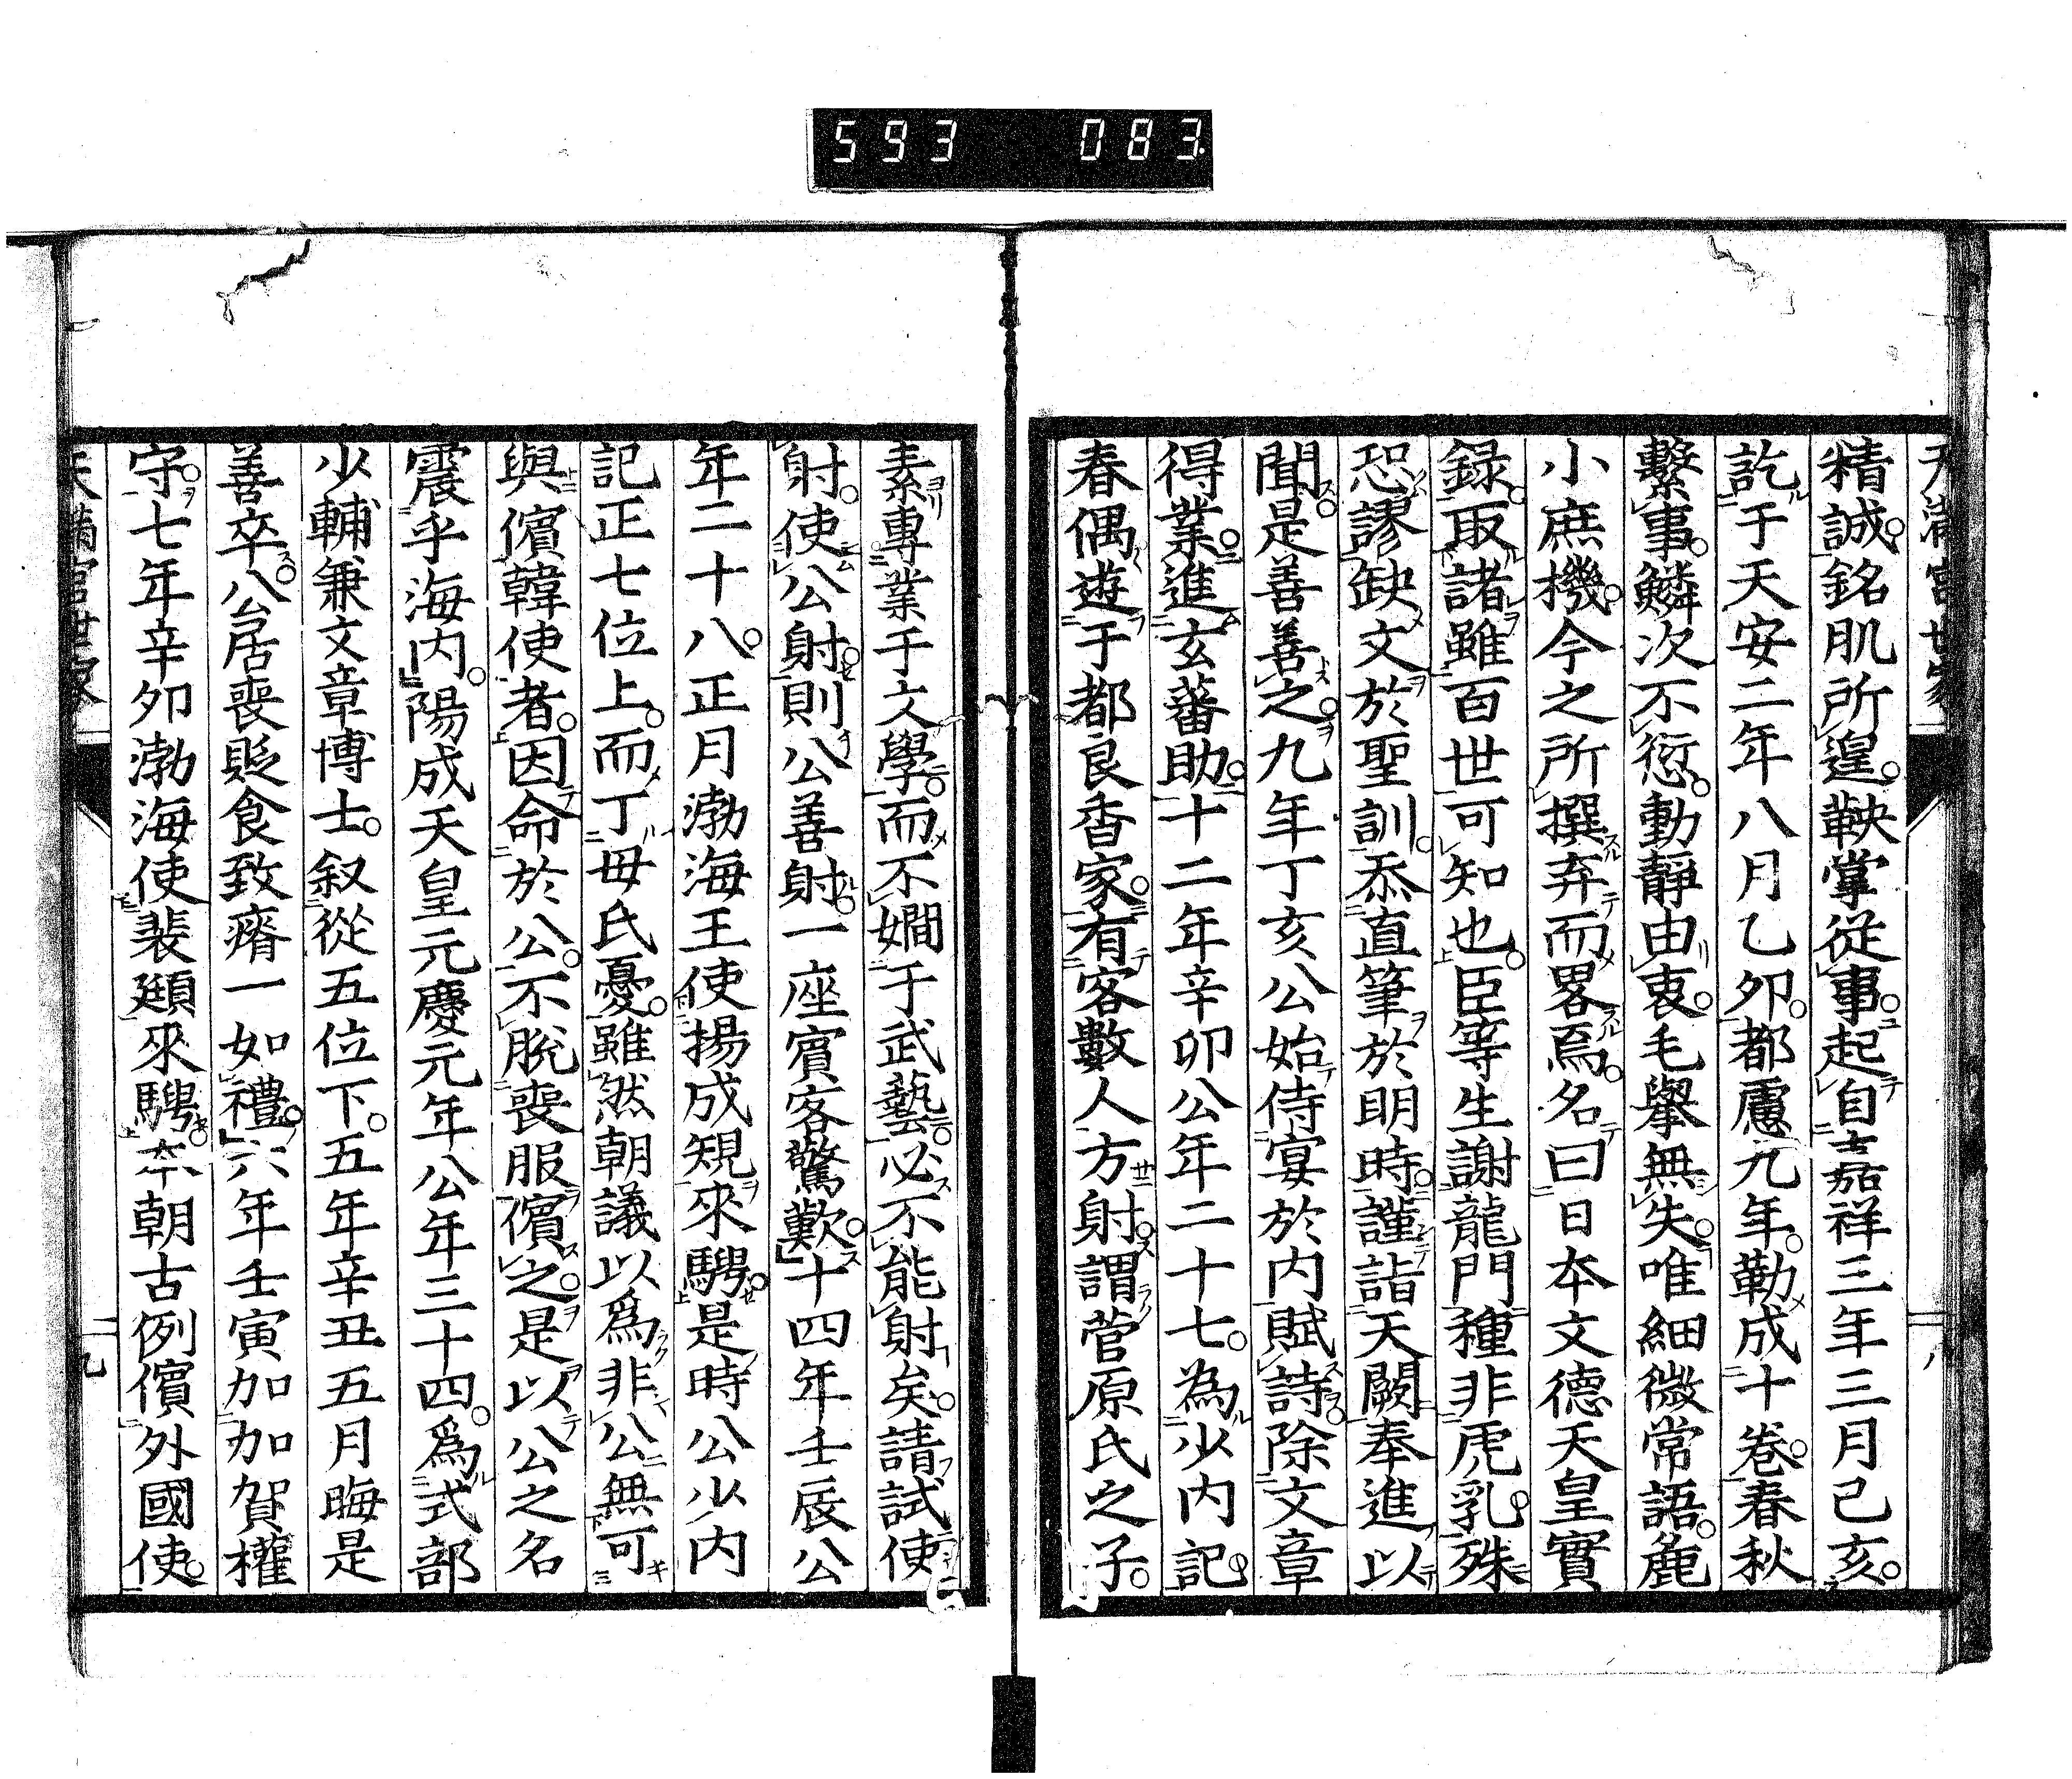 593 083
天満宮世家
精誠銘肌所遑鞅掌從事起自嘉祥三年三月己亥
訖于天安二年八月乙卯都慮九年勒成十卷春秋
繫事鱗次不愆動靜由衷毛擧無失唯細微常語麁
小庶機今之所撰弃而畧焉名曰日本文德天皇實
録取諸雖百世可知也臣等生謝龍門種非虎乳殊
恐謬缺文於聖訓忝直筆於明時謹詣天闕奉進以
聞是善善之九年丁亥公始侍宴於内賦詩除文章
得業進玄蕃助十二年辛卯公年二十七為少内記
春偶遊于都良香家有客數人方射謂菅原氏之子
素專業于文學而不嫺于武藝必不能射矣請試使
射使公射則公善射一座賓客驚歎十四年壬辰公
年二十八正月渤海王使揚成規來騁是時公少内
記正七位上而丁毋氏憂雖然朝議以爲非公無可
與儐韓使者因命於公不脱喪服儐之是以公之名
震乎海内陽成天皇元慶元年公年三十四爲式部
少輔兼文章博士叙從五位下五年辛丑五月晦是
善卒公居喪貶食致瘠一如禮六年壬寅加加賀權
守七年辛卯渤海使裴頲來騁本朝古例儐外國使
天滿宮世家